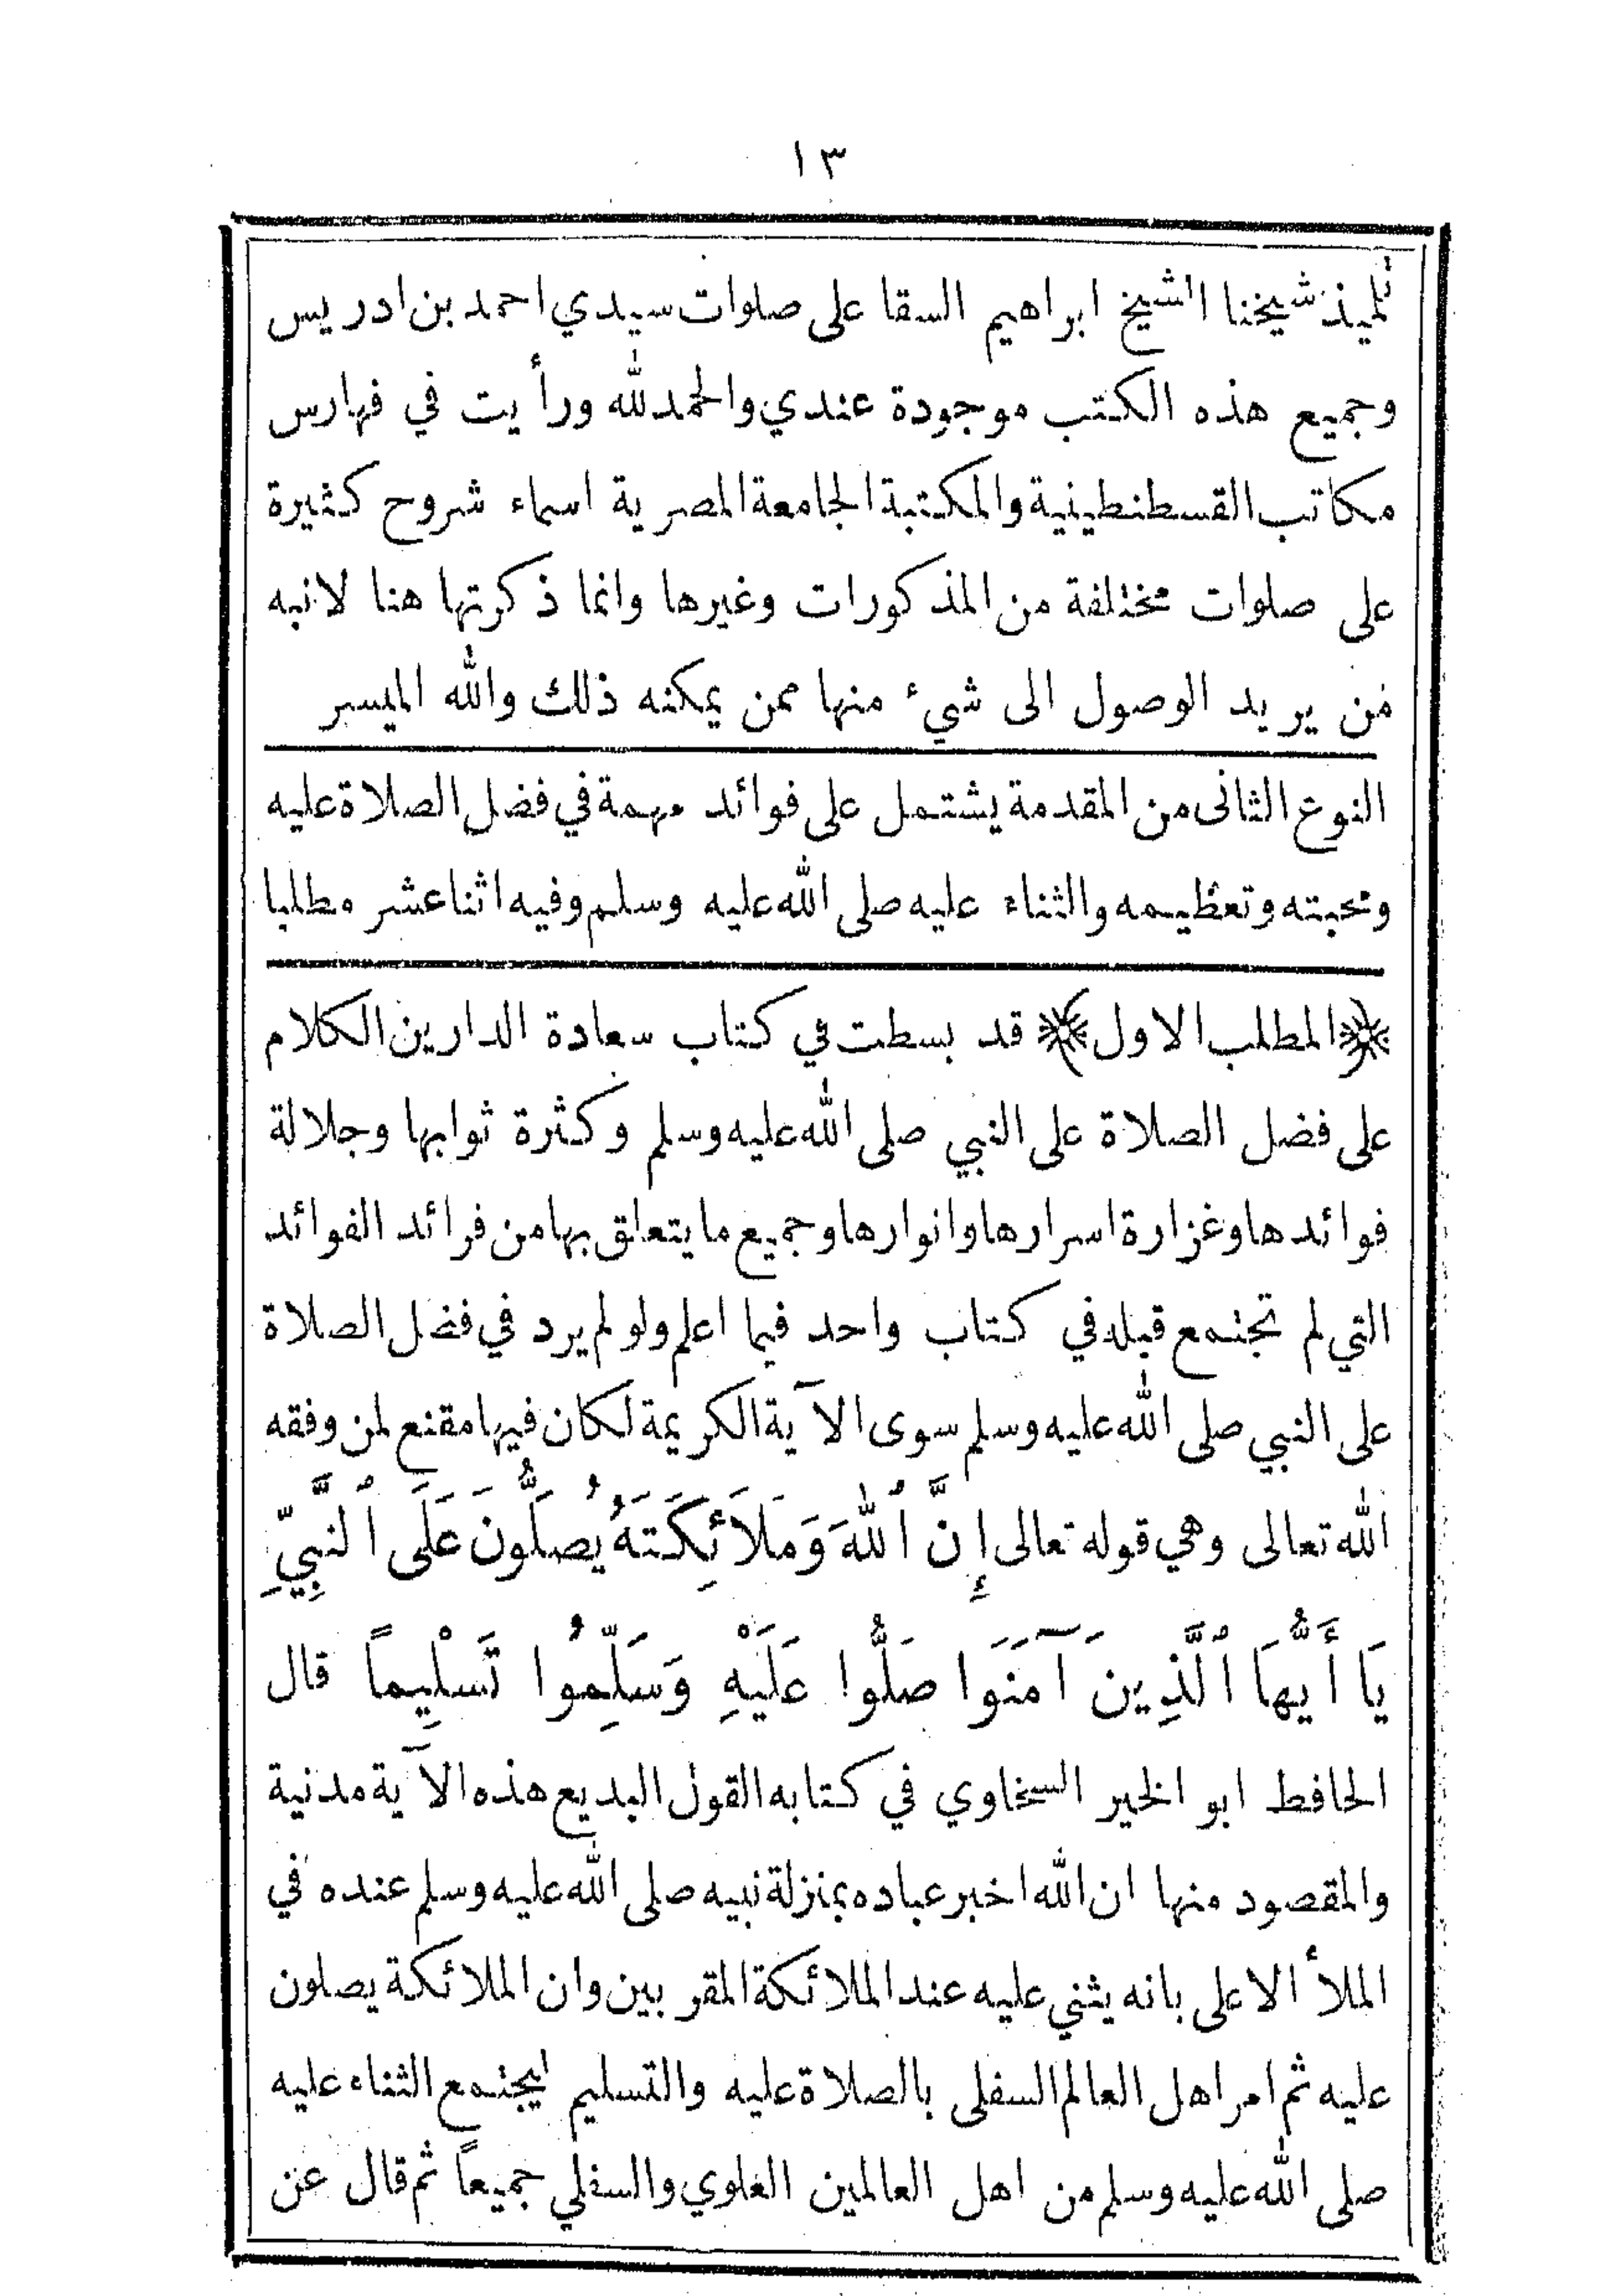 ١٣
تلميذ شيخنا الشيخ ابراهيم السقا على صلوات سيدي احمد بن ادريس
وجميع هذه الكتب موجودة عندي والحمد لله ورأيت في فهارس
مكاتب القسطنطينية والمكتبة الجامعة المصرية اسماء شروح كثيرة
على صلوات مختلفة من المذكورات وغيرها وانما ذكرتها هنا لانبه
من يريد الوصول الى شيء منها ممن يمكنه ذلك والله الميسر
النوع الثانى من المقدمة يشتمل على فوائد مهمة في فضل الصلاة عليه
ومحبته وتعظيمه والثناء عليه صلى الله عليه وسلم وفيه اثنا عشر مطلبا
﴿المطلب الاول﴾ قد بسطت في كتاب سعادة الدارين الكلام
على فضل الصلاة على النبي صلى الله عليه وسلم وكثرة ثوابها وجلالة
فوائدها وغزارة اسرارها وانوارها وجميع ما يتعلق بها من فرائد الفوائد
التي لم تجتمع قبله في كتاب واحد فيما اعلم ولو لم يرد في فضل الصلاة
على النبي صلى الله عليه وسلم سوى الآية الكريمة لكان فيها مقنع لمن وفقه
الله تعالى وهي قوله تعالى إِنَّ ٱللّٰهَ وَمَلَائِكَتَهُ يُصَلُّونَ عَلَى ٱلنَّبِيِّ
يَا أَيُّهَا ٱلَّذِينَ آمَنَوا صَلُّوا عَلَيْهِ وَسَلِّمُوا تَسْلِيماً قال
الحافظ ابو الخير السخاوي في كتابه القول البديع هذه الآية مدنية
والمقصود منها ان الله اخبر عباده بمنزلة نبيه صلى الله عليه وسلم عنده في
الملأ الاعلى بانه يثني عليه عند الملائكة المقربين وان الملائكة يصلون
عليه ثم امر اهل العالم السفلى بالصلاة عليه والتسليم ليجتمع الثناء عليه
صلى الله عليه وسلم من اهل العالمين العلوي والسفلي جميعاً ثم قال عن